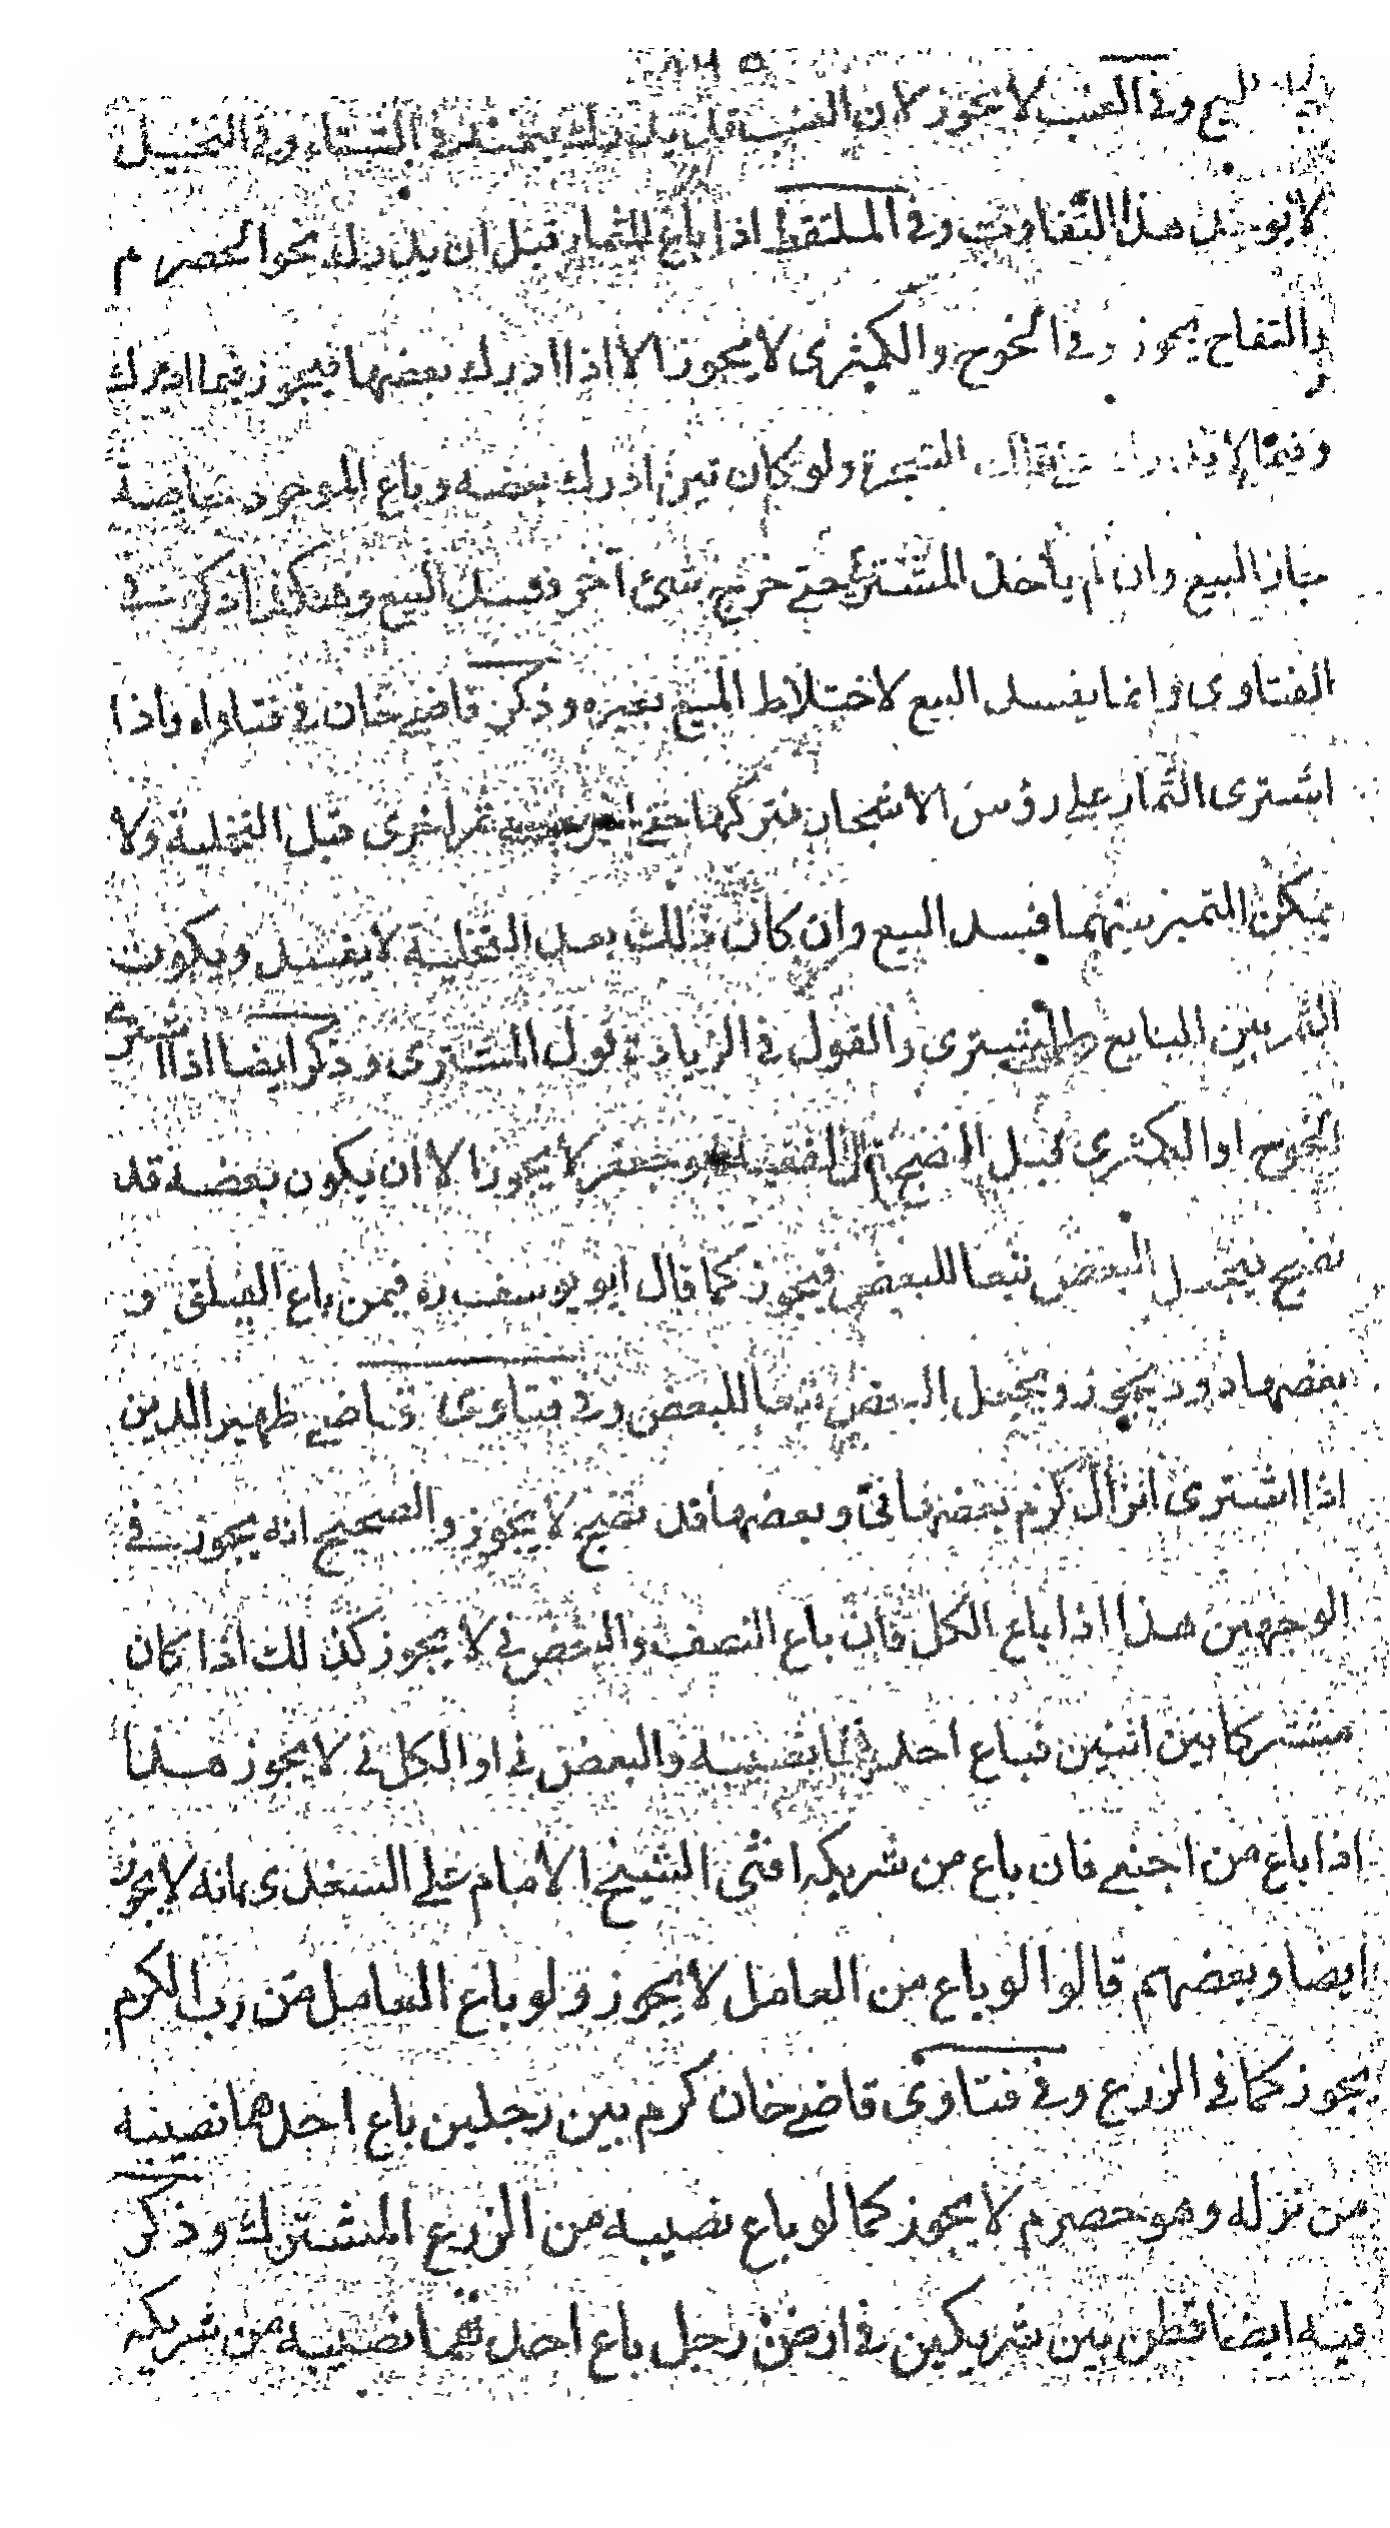 البيع وفي العنب لا يجوز لان العنب قد يدرك بعضه في الشتاء وفي النخيل
لا يوجد هذا التفاوت وفي الملتقط اذا باع الثمار قبل ان يدرك نحو الحصرم
والتفاح يجوز وفي الخوخ والكمثرى لا يجوز الا اذا ادرك بعضها فيجوز فيما ادرك
وفيما لا يدرك من تلك الشجرة ولو كان تين ادرك بعضه وباع الموجود خاصة
جاز البيع وان لم يأخذ المشتري حتى خرج شئ آخر فسد البيع وهكذا ذكر في
الفتاوى وانما يفسد البيع لاختلاط المبيع بغيره وذكر قاضيخان في فتاواه واذا
اشترى الثمار على رؤس الاشجار فتركها حتى ثمر اخرى قبل التخلية ولا
يمكن التميز بينهما فسد البيع وان كان ذلك بعد التخلية لا يفسد ويكون
الثمر بين البايع والمشترى والقول في الزيادة قول المشترى وذكر ايضا اذا اشترى
الخوخ او الكمثرى قبل النضج قال الفقيه ابو جعفر لا يجوز الا ان يكون بعضه قد
نضج فيجعل البعض تبعا للبعض فيجوز كما قال ابو يوسف ره فيمن باع الفيلق و
بعضها دود يجوز ويجعل البعض تبعا للبعض وفي فتاوى قاضي ظهير الدين
اذا اشترى انزال كرم بعضها نئ وبعضها قد نضج لا يجوز والصحيح انه يجوز في
الوجهين هذا اذا باع الكل فان باع النصف والبعض نئ لا يجوز كذلك اذا كان
مشتركا بين اثنين فباع احدهما نصيبه والبعض نئ او الكل نئ لا يجوز هذا
اذا باع من اجنبي فان باع من شريكه افتى الشيخ الامام علي السغدي بانه لا يجوز
ايضا وبعضهم قالوا لو باع من العامل لا يجوز ولو باع العامل من رب الكرم
يجوز كما في الزرع وفي فتاوى قاضي خان كرم بين رجلين باع احدهما نصيبه
من نزله وهو حصرم لا يجوز كما لو باع نصيبه من الزرع المشترك وذكر
فيه ايضا قطن بين شريكين في ارض رجل باع احدهما نصيبه من شريكه